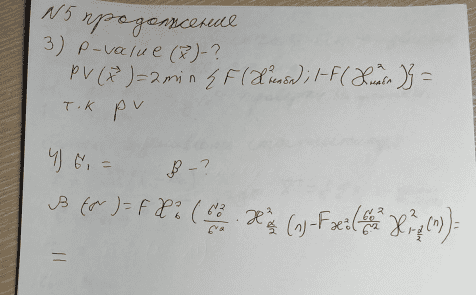 N5 продолжение
3) P-value (x⃗)-?
PV(x⃗)=2min {F(χ²набл); 1-F(χ²набл)}=
т.к PV
4) σ₁ = β-?
β(σ)=Fχ²₆(σ₀²/σ² · χ²_{α/2}(n)-Fχ²₀(σ₀²/σ² χ²_{1-α/2}(n))=
=